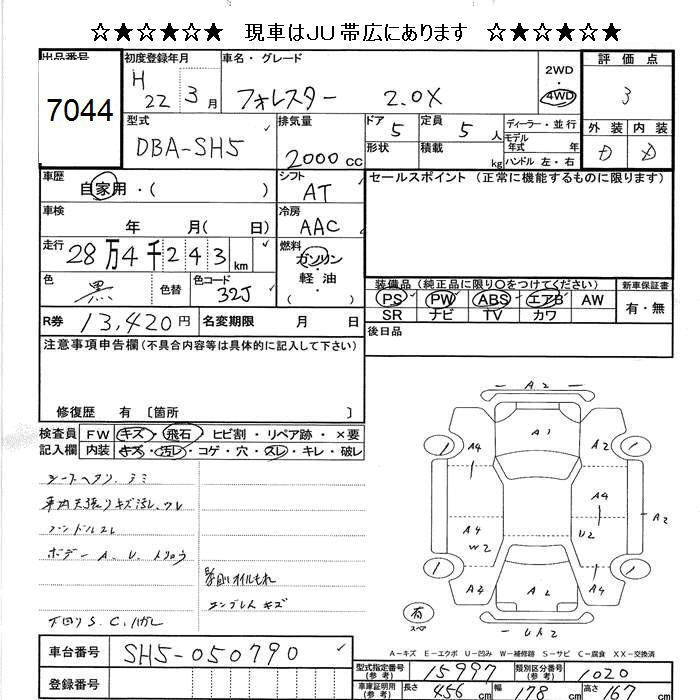 ☆★☆★☆★ 現車はJU帯広にあります ☆★☆★☆★
出品番号
7044
初度登録年月
H 22 3月
車名・グレード
フォレスター 2.0X
2WD
・
4WD
評価点
3
外装 内装
D D
型式
DBA-SH5
排気量
2000cc
ドア 5
形状
定員 5人
積載 kg
ディーラー・並行
モデル
年式 年
ハンドル 左・右
車歴
自家用・( )
シフト
AT
セールスポイント (正常に機能するものに限ります)
車検
年 月( 日)
冷房
AAC
走行
28万4千243km
燃料
ガソリン
・
軽油
( )
色
黒
色替
色コード
32J
装備品 (純正品に限り〇をつけてください)
PS PW ABS エアB AW
SR ナビ TV カワ
新車保証書
有・無
R券 13,420円
名変期限 月 日
後日品
注意事項申告欄(不具合内容等は具体的に記入して下さい)
修復歴 有 〔箇所 〕
検査員
記入欄
FW キズ・飛石・ヒビ割・リペア跡・×要
内装 キズ・汚レ・コゲ・穴・スレ・キレ・破レ
シートヘタリ、シミ
車内天張りキズ汚レ、ワレ
ハンドルスレ
ボデー A、U、トリョウ
下回りS、C、ハガレ
エンブレムキズ
A2
A1
A4
A2
A4
A4
W2
A4
U2
A2
A4
A2
A2
有
スペア
A-キズ E-エクボ U-凹み W-補修跡 S-サビ C-腐食 XX-交換済
車台番号 SH5-050790
登録番号
型式指定番号
(参考)
15997
類別区分番号
(参考)
1020
車庫証明用
(参考)
長さ 456cm
幅 178cm
高さ 167cm